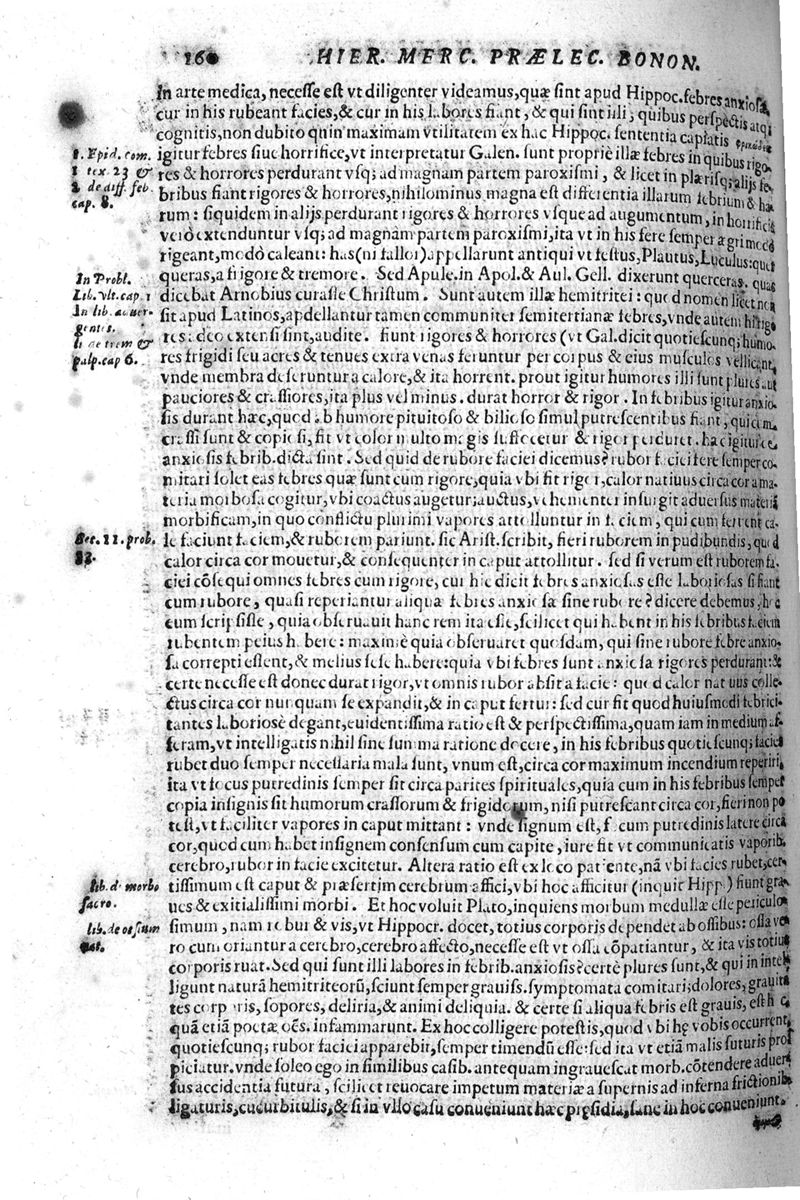 HIER. MERC. PRÆLEC. BONON.
In arte medica, neceſſe eſt vt diligenter videamus, quæ ſint apud Hippoc. febres anxioſæ
cur in his rubeant facies, & cur in his labores fiant, & qui ſint illi, quibus perſpectis atq;
cognitis, non dubito quin maximam vtilitatem ex hac Hippoc. ſententia capiatis
1. Epid. com.
igitur febres ſiue horrifice, vt interpretatur Galen. ſunt propriè illæ febres in quibus rigo-
tex. 23 &
res & horrores perdurant vſq; ad magnam partem paroxiſmi, & licet in plæriſq; alijs fe-
2 de diff. feb.
bribus fiant rigores & horrores, nihilominus magna eſt differentia illarum febrium & ha
cap. 8.
rum: ſiquidem in alijs perdurant rigores & horrores vſque ad augumentum, in horrificis
verò extenduntur vſq; ad magnam partem paroxiſmi, ita vt in his fere ſemper ægri modò
rigeant, modò caleant: has (ni fallor) appellarunt antiqui vt feſtus, Plautus, Luculus: quer
In Probl.
queras, a frigore & tremore. Sed Apule. in Apol. & Aul. Gell. dixerunt querceras. quas
Lib. vlt. cap. 1
dicebat Arnobius curaſſe Chriſtum. Sunt autem illæ hemitritei: quod nomen licet non
In lib. aduer-
ſit apud Latinos, appellantur tamen communiter ſemitertianæ febres, vnde autem hi rigo
gentes.
res: adeo extenſi ſint, audite. fiunt rigores & horrores (vt Gal. dicit quotieſcunq; humo-
li de trem &
palp. cap 6.
res frigidi ſeu acres & tenues extra venas feruntur per corpus & eius muſculos vellicant,
vnde membra deſeruntur a calore, & ita horrent. prout igitur humores illi ſunt plures aut
pauciores & craſſiores, ita plus vel minus. durat horror & rigor. In febribus igitur anxio-
ſis durant hæc, quod ab humore pituitoſo & bilioſo ſimul putreſcentibus fiant, qui cum
craſſi ſunt & copioſi, fit vt calor multo magis ſuffocetur & rigor perduret. hac igitur de
anxioſis febrib. dicta ſint. Sed quid de rubore faciei dicemus? rubor faciei fere ſemper co-
mitari ſolet eas febres quæ ſunt cum rigore, quia vbi fit rigor, calor natiuus circa cor a ma-
teria morboſa cogitur, vbi coactus augetur; auctus, vehementer inſurgit aduerſus materiā
morbificam, in quo conflictu plurimi vapores attolluntur in faciem, qui cum ferrent ca-
Sec. 11. prob.
le faciunt faciem, & ruborem pariunt. ſic Ariſt. ſcribit, fieri ruborem in pudibundis, quod
calor circa cor mouetur, & conſequenter in caput attollitur. ſed ſi verum eſt ruborem fa-
ciei cōſequi omnes febres cum rigore, cur hic dicit febres anxioſas eſſe laborioſas ſi fiant
cum rubore, quaſi reperiantur aliquæ febres anxioſæ ſine rubore? dicere debemus, hoc
eum ſcripſiſſe, quia obſeruauit hanc rem ita eſſe, ſcilicet qui habent in his febribus faciem
rubentem peius habere: maximè quia obſeruaret quoſdam, qui ſine rubore febre anxio-
ſa correpti eſſent, & melius ſeſe habere: quia vbi febres ſunt anxioſa rigores perdurant: &
certe neceſſe eſt donec durat rigor, vt omnis rubor abſit a facie: quod calor natiuus colle-
ctus circa cor nunquam ſe expandit, & in caput fertur: ſed cur fit quod huiuſmodi febrici-
tantes laborioſè degant, euidentiſſima ratio eſt & perſpectiſſima, quam iam in medium af-
feram, vt intelligatis nihil ſine ſumma ratione docere, in his febribus quotieſcunq; facies
rubet duo ſemper neceſſaria mala ſunt, vnum eſt, circa cor maximum incendium reperiri,
ita vt focus putredinis ſemper ſit circa parites ſpirituales, quia cum in his febribus ſemper
copia inſignis ſit humorum craſſorum & frigidorum, niſi putreſcant circa cor, fieri non po
teſt, vt faciliter vapores in caput mittant: vnde ſignum eſt, focum putredinis latere circa
cor, quod cum habet inſignem conſenſum cum capite, iure fit vt communicatis vaporib.
cerebro, rubor in facie excitetur. Altera ratio eſt ex loco patiente, nā vbi facies rubet, cer-
lib. d' morbo
tiſſimum eſt caput & præſertim cerebrum affici, vbi hoc afficitur (inquit Hipp.) fiunt gra-
ſacro.
ues & exitialiſſimi morbi. Et hoc voluit Plato, inquiens morbum medullæ eſſe periculo
lib. de oſsium
ſimum, nam robur & vis, vt Hippocr. docet, totius corporis dependet ab oſſibus: oſſa ve-
nat.
ro cum oriantur a cerebro, cerebro affecto, neceſſe eſt vt oſſa cōpatiantur, & ita vis totius
corporis ruat. Sed qui ſunt illi labores in febrib. anxioſis? certè plures ſunt, & qui in intel-
ligunt naturā hemitriteorū, ſciunt ſemper grauiſs. ſymptomata comitari; dolores, grauita
tes corporis, ſopores, deliria, & animi deliquia. & certe ſi aliqua febris eſt grauis, eſt hæc
quā etiā poetæ oēs. infammarunt. Ex hoc colligere poteſtis, quod vbi hę vobis occurrent,
quotieſcunq; rubor faciei apparebit, ſemper timendū eſſe: ſed ita vt etiā malis futuris proſ
piciatur. vnde ſoleo ego in ſimilibus caſib. antequam ingraueſcat morb. cōtendere aduer-
ſus accidentia futura, ſcilicet reuocare impetum materiæ a ſupernis ad inferna frictionib.
ligaturis, cucurbitulis, & ſi in vllo caſu conueniunt hæc preſidia, ſane in hoc conueniunt.